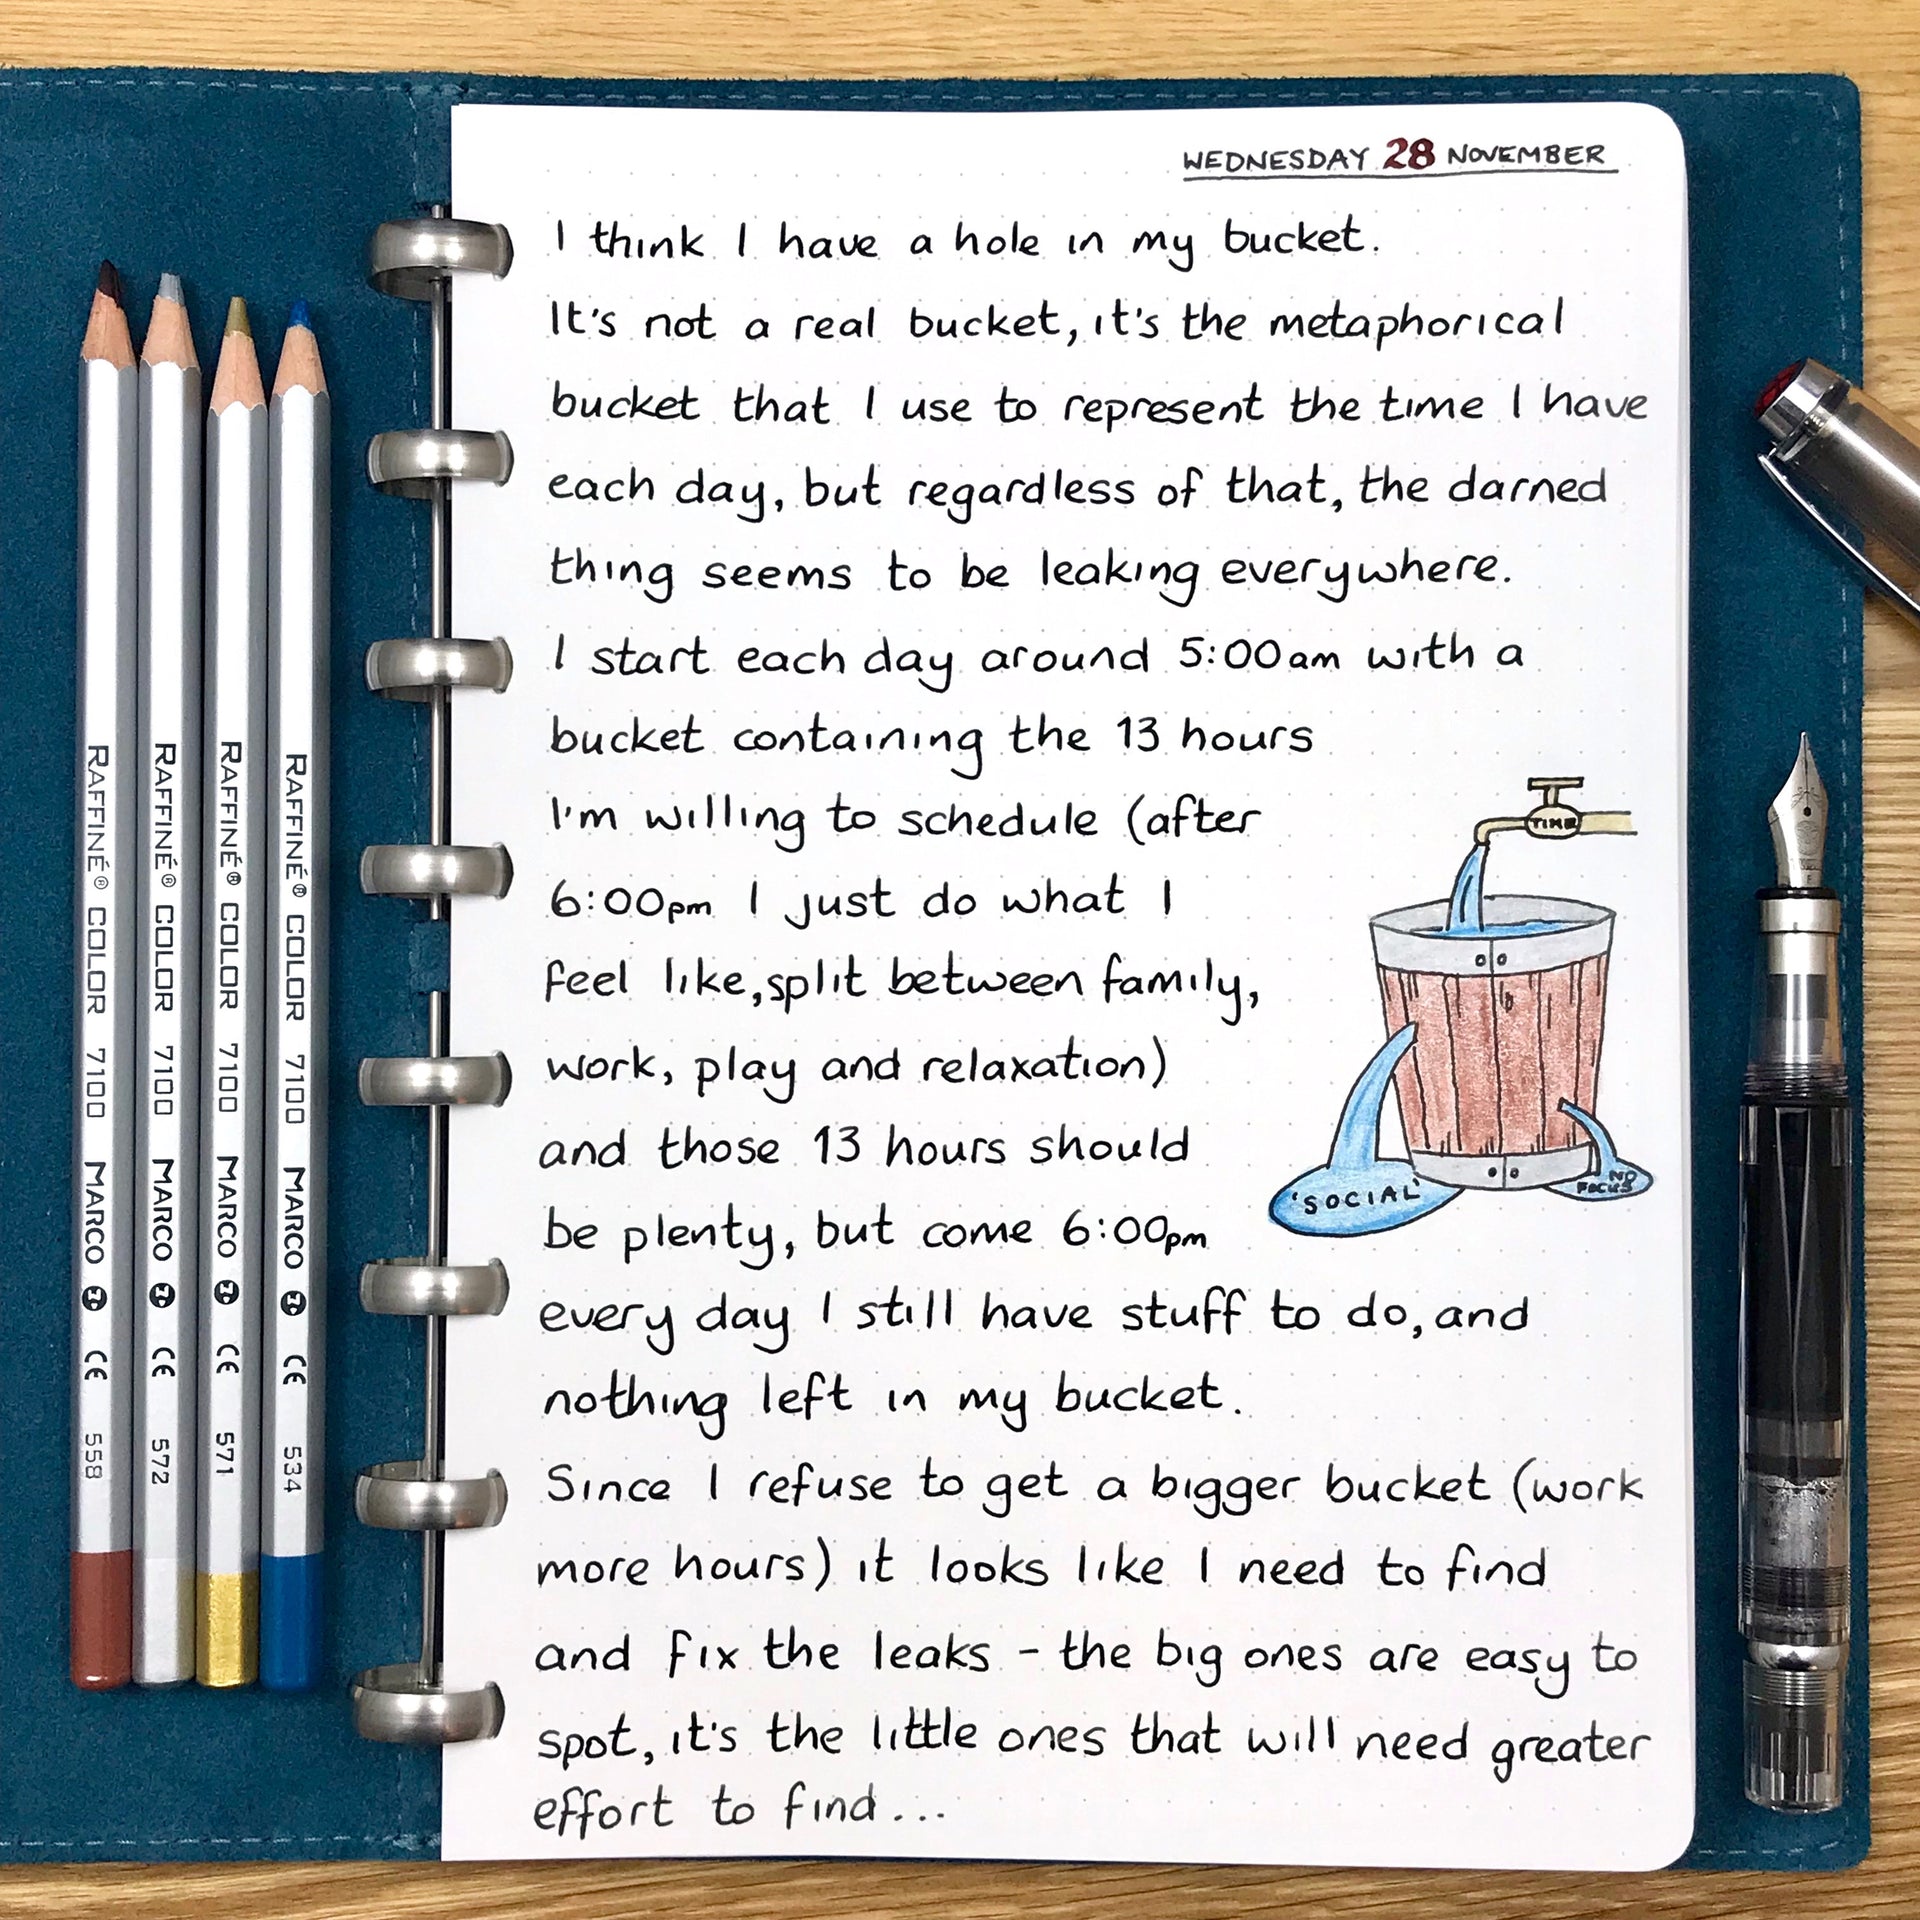 WEDNESDAY 28 NOVEMBER
I think I have a hole in my bucket.
It's not a real bucket, it's the metaphorical
bucket that I use to represent the time I have
each day, but regardless of that, the darned
thing seems to be leaking everywhere.
I start each day around 5:00am with a
bucket containing the 13 hours
I'm willing to schedule (after
6:00pm I just do what I
feel like, split between family,
work, play and relaxation)
and those 13 hours should
be plenty, but come 6:00pm
every day I still have stuff to do, and
nothing left in my bucket.
Since I refuse to get a bigger bucket (work
more hours) it looks like I need to find
and fix the leaks - the big ones are easy to
spot, it's the little ones that will need greater
effort to find...
TIME
'SOCIAL'
NO
FOCUS
RAFFINÉ® COLOR 7100 MARCO CE 558
RAFFINÉ® COLOR 7100 MARCO CE 572
RAFFINÉ® COLOR 7100 MARCO CE 571
RAFFINÉ® COLOR 7100 MARCO CE 534